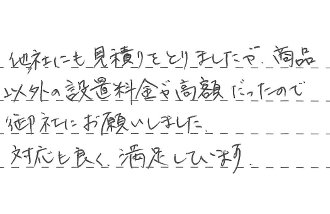 他社にも見積りをとりましたが、商品
以外の設置料金が高額だったので
御社にお願いしました。
対応も良く、満足しています。